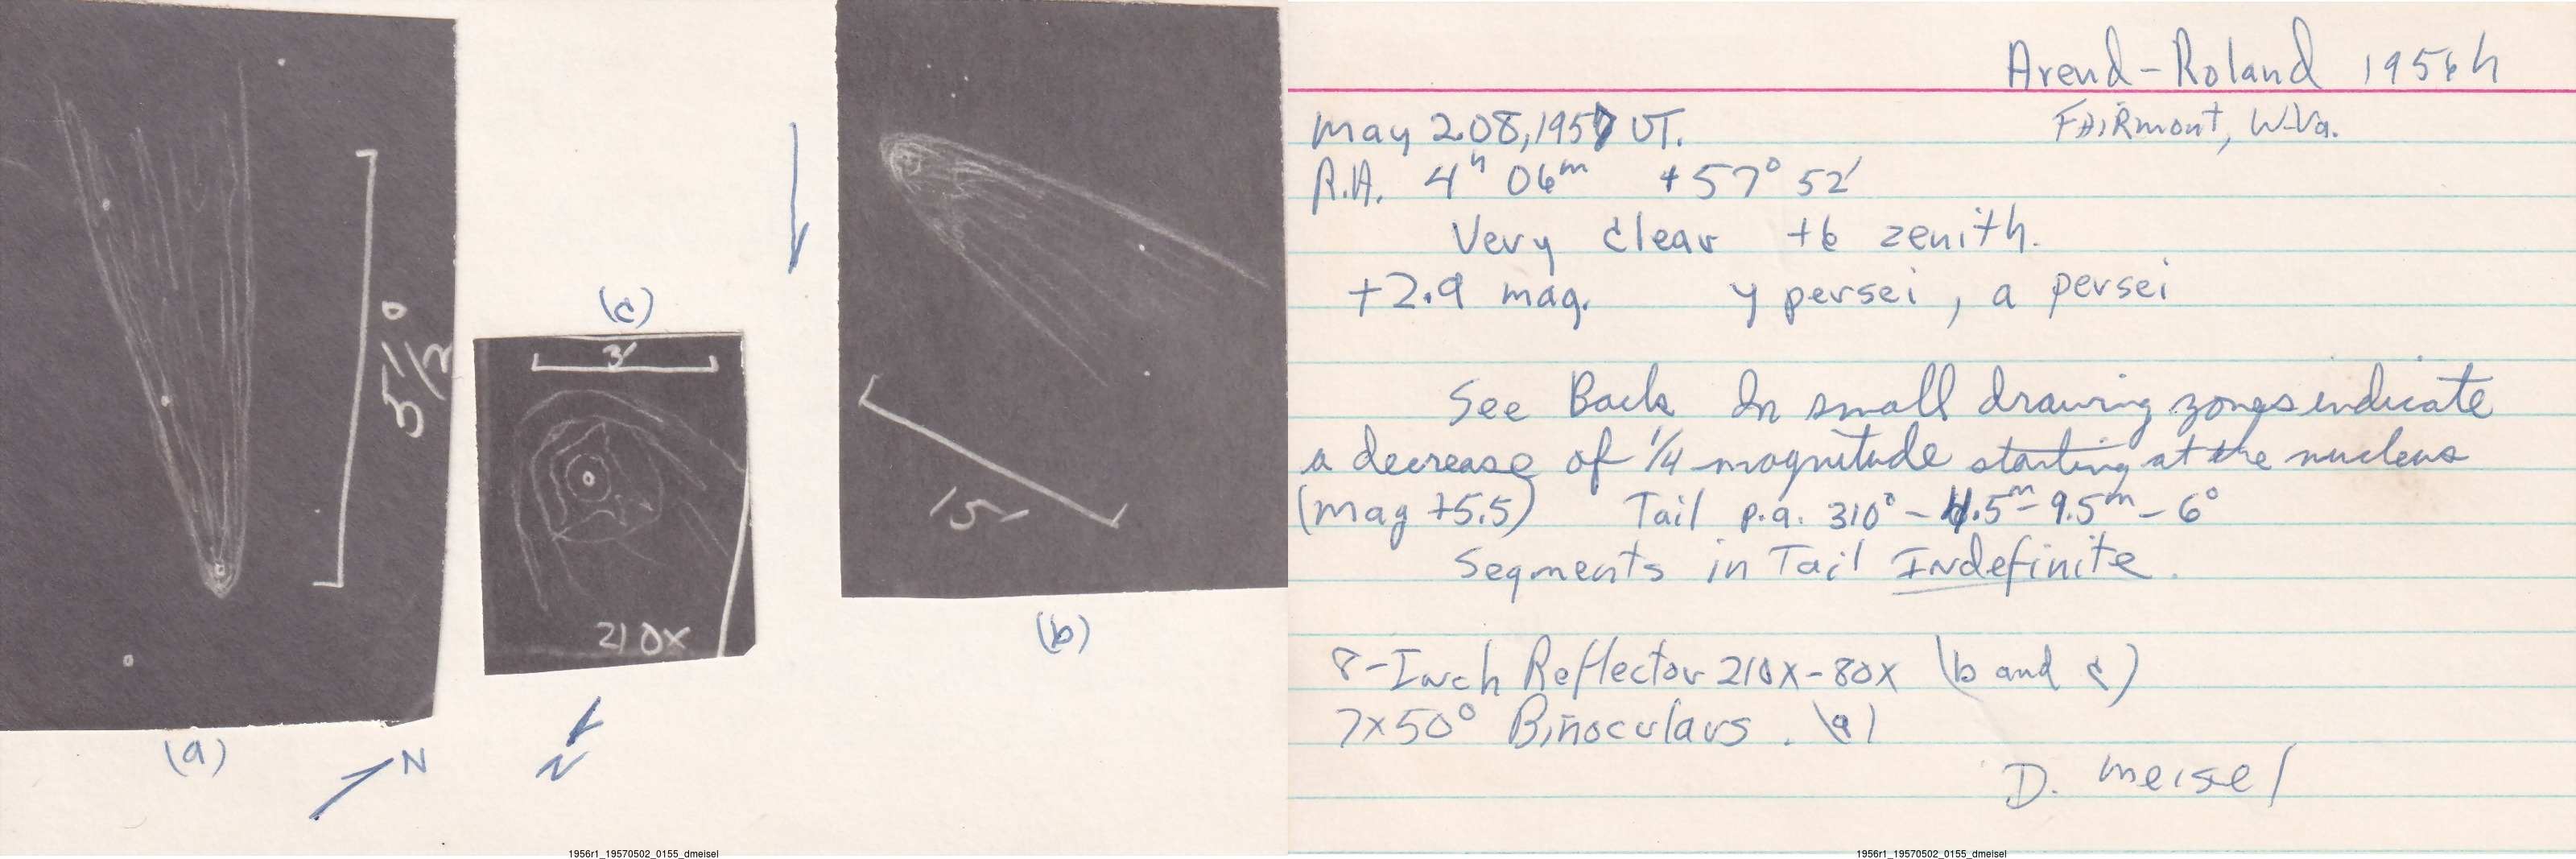 5 1/2°
(a)
N
(c)
3'
210x
N
15'
(b)
1956r1_19570502_0155_dmeisel
Arend-Roland 1956h
May 2.08, 1957 UT.
Fairmont, W.Va.
R.A. 4h 06m +57° 52'
Very clear +6 zenith.
+2.9 mag. γ persei, a persei
See Back In small drawing zones indicate
a decrease of 1/4 magnitude starting at the nucleus
(mag +5.5) Tail p.a. 310° - 4.5m - 9.5m - 6°
Segments in Tail Indefinite.
8-Inch Reflector 210x-80x (b and c)
7x50° Binoculars. (a)
D. Meisel
1956r1_19570502_0155_dmeisel